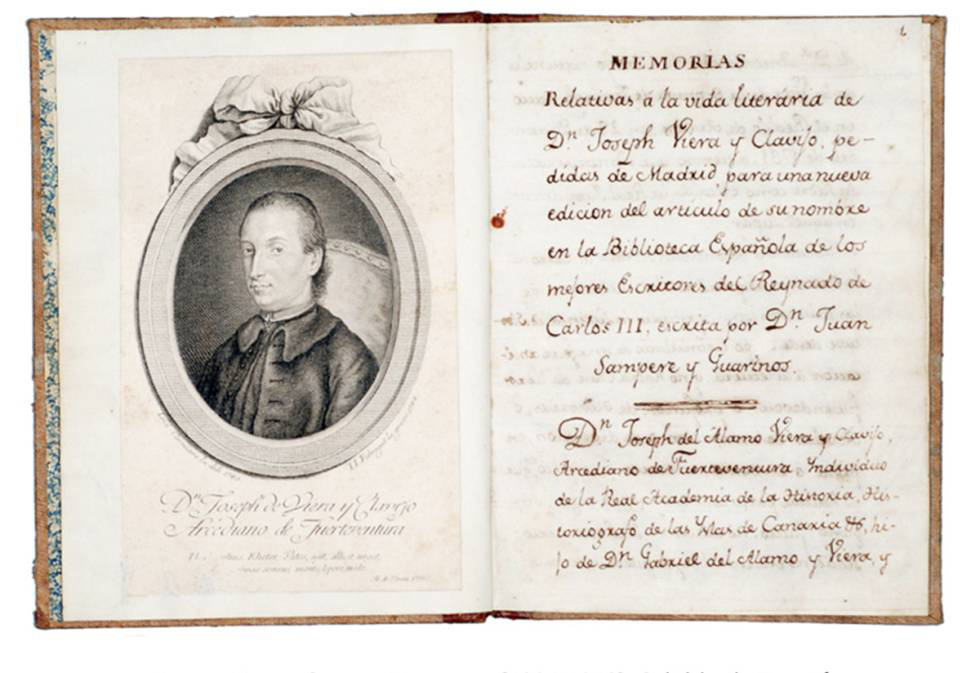 Dⁿ Joseph de Viera y Clavijo
Arcediano de Fuerteventura
1
MEMORIAS
Relativas à la vida literaria de
Dⁿ Joseph Viera y Clavijo, pe-
didas de Madrid para una nueva
edicion del articulo de su nombre
en la Biblioteca Española de los
mejores Escritores del Reynado de
Carlos III, escrita por Dⁿ Juan
Sempere y Guarinos.
Dⁿ Joseph del Alamo Viera y Clavijo,
Arcediano de Fuerteventura, Individuo
de la Real Academia de la Historia, His-
toriografo de las Yslas de Canaria &, hi-
jo de Dⁿ Gabriel del Alamo y Viera, y